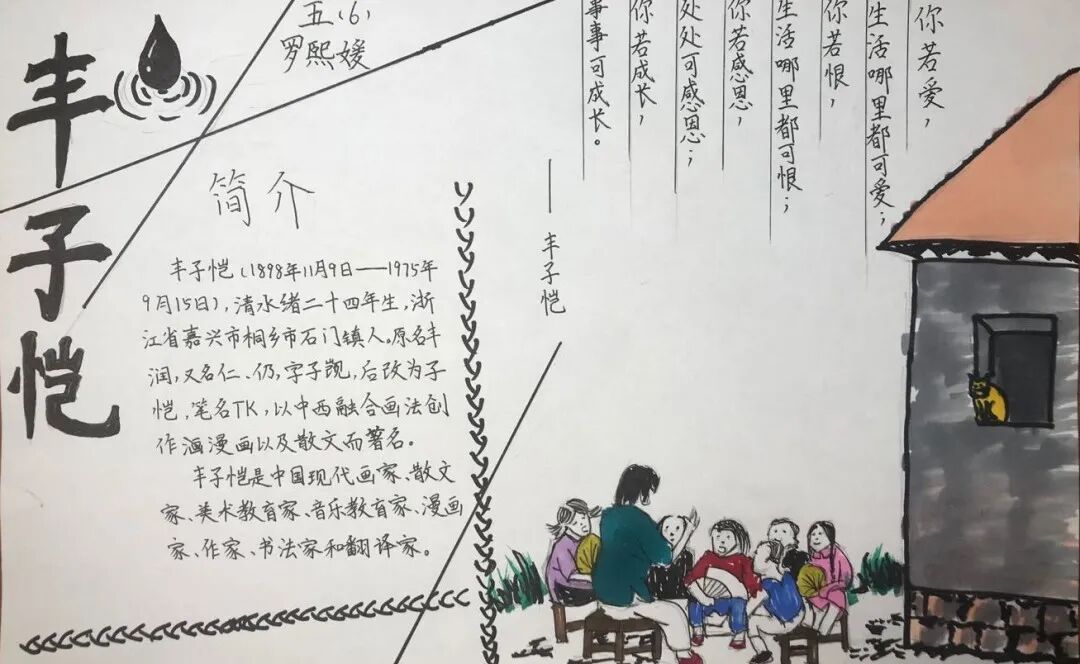 丰子恺
五(6)
罗熙媛
简介
丰子恺(1898年11月9日——1975年
9月15日),清水绪二十四年生,浙
江省嘉兴市桐乡市石门镇人。原名丰
润,又名仁、仍,字子觊,后改为子
恺,笔名TK,以中西融合画法创
作洒漫画以及散文而著名。
丰子恺是中国现代画家、散文
家、美术教育家、音乐教育家、漫画
家、作家、书法家和翻译家。
你若爱,
生活哪里都可爱;
你若恨,
生活哪里都可恨;
你若感恩,
处处可感恩;
你若成长,
事事可成长。
——丰子恺